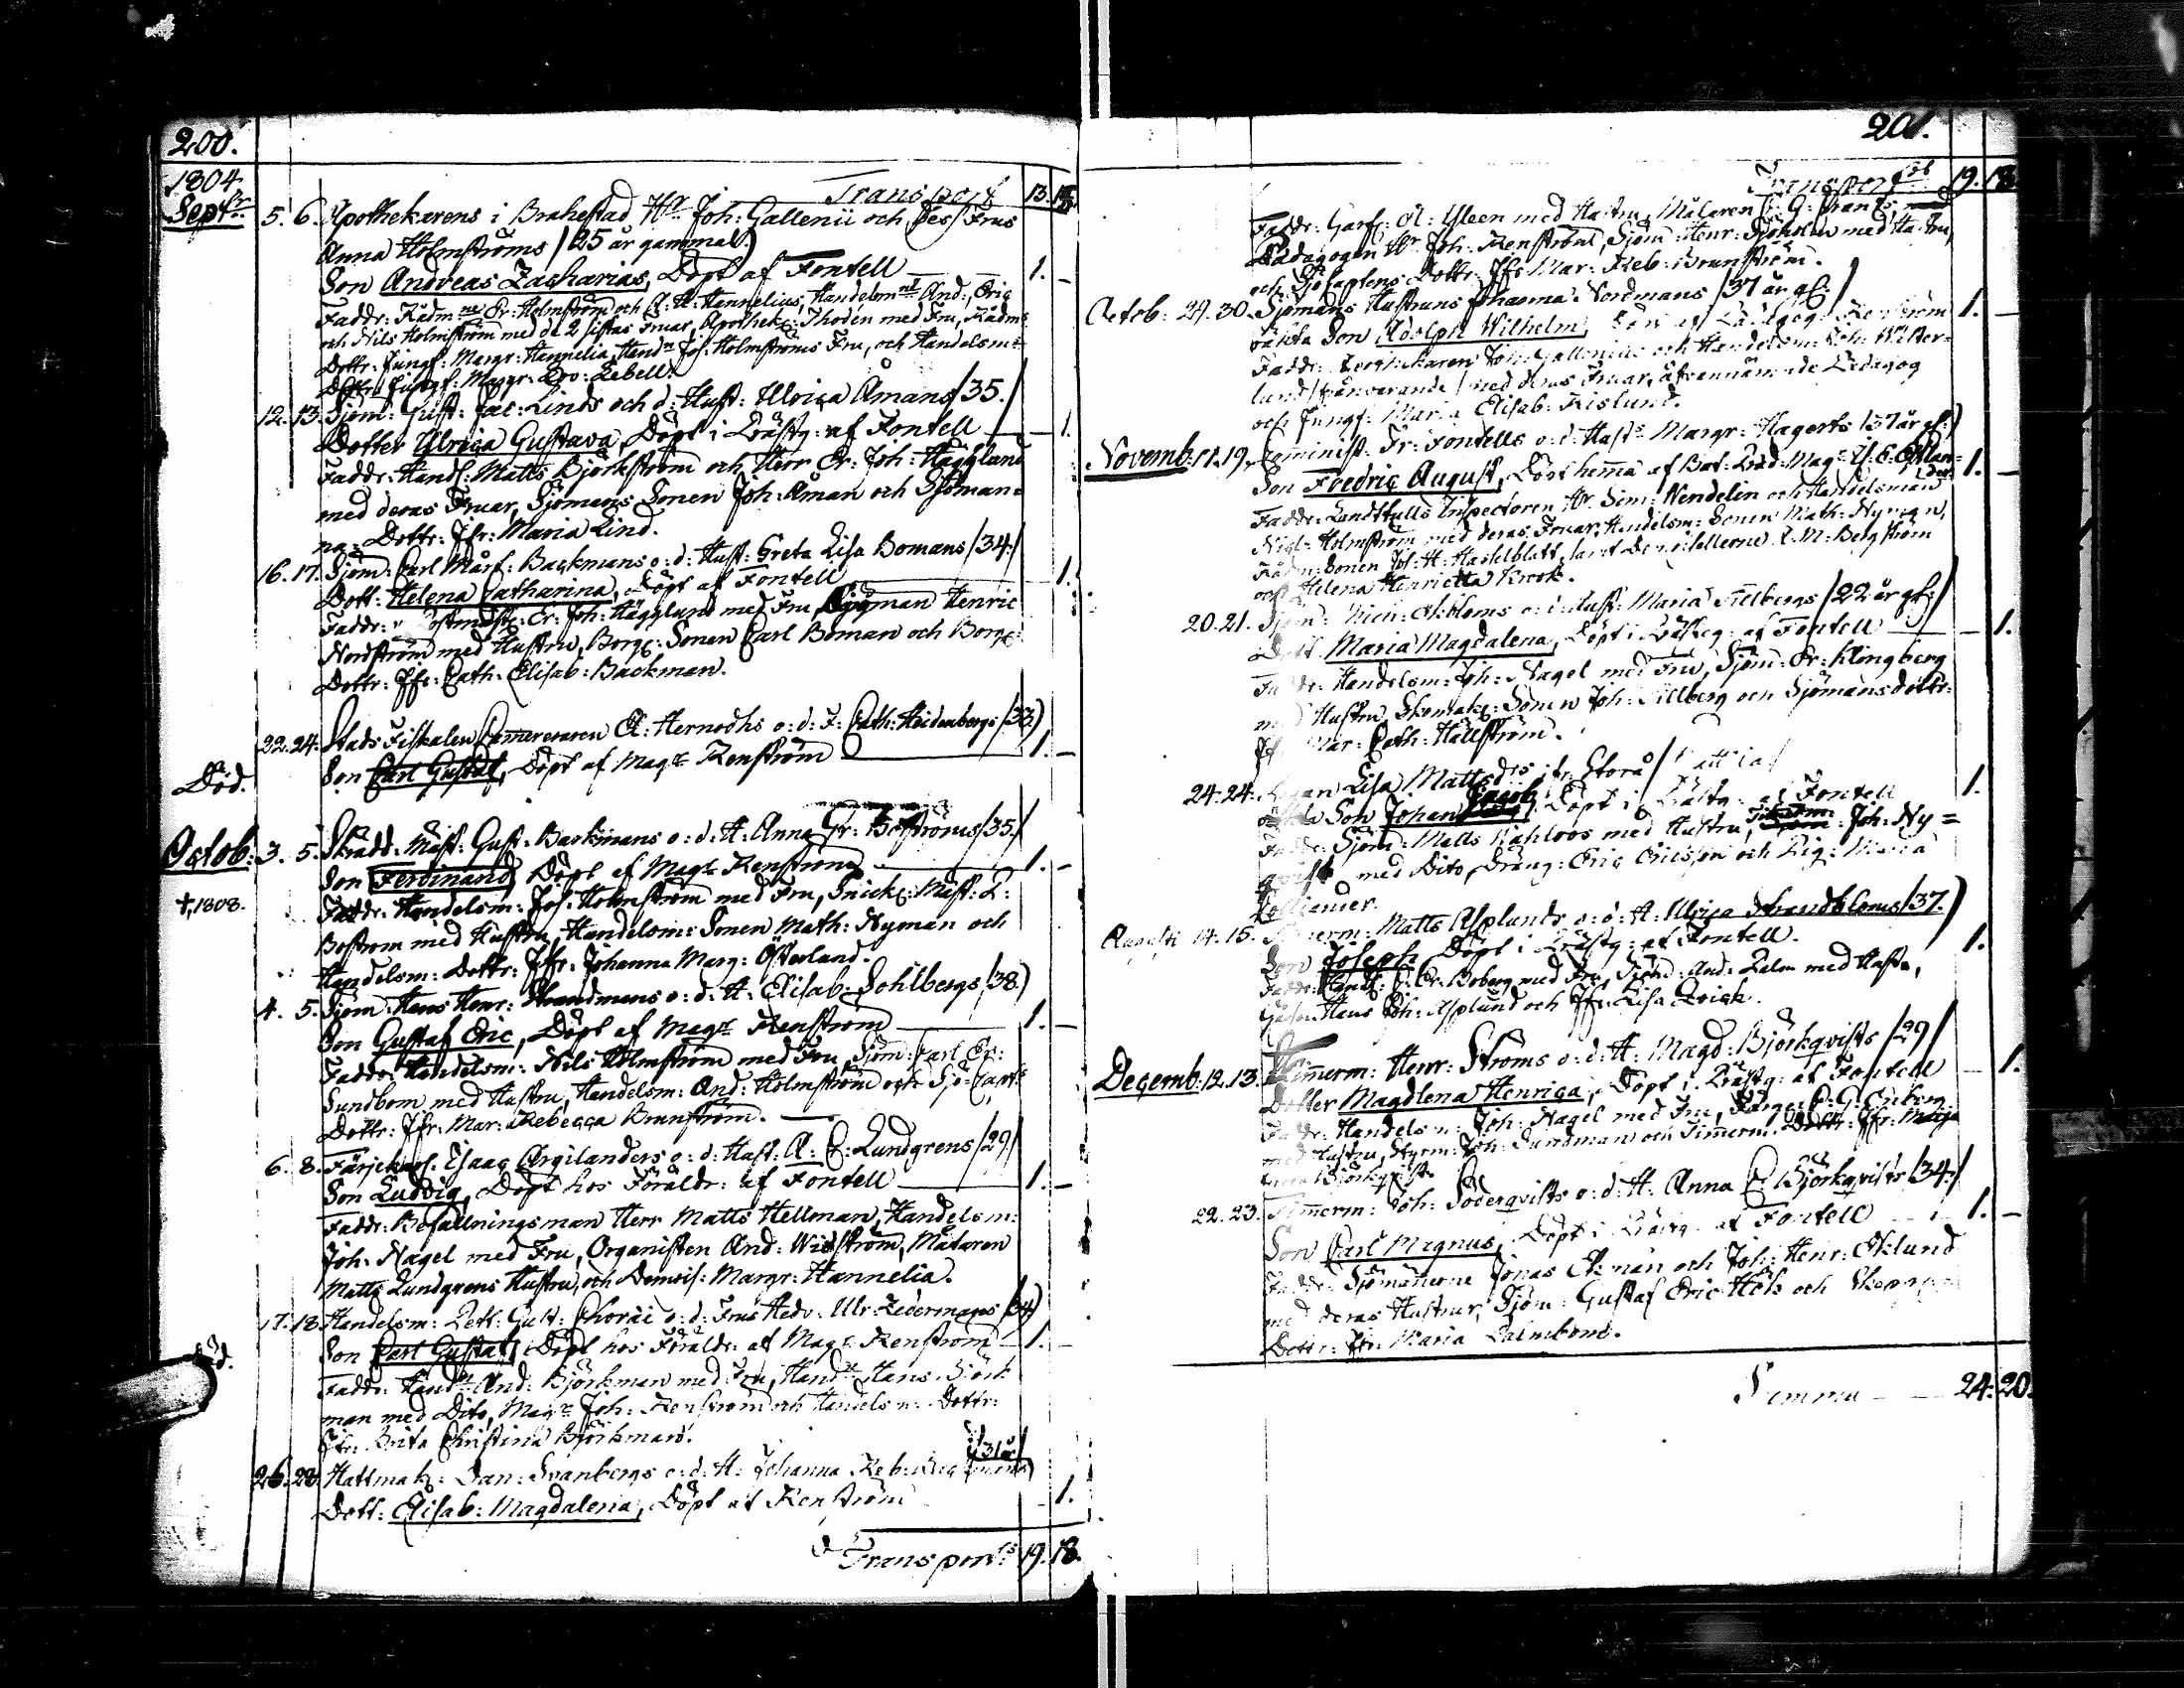 200.
1804
Transport 13.
Septr 5. 6. Apothekarens i Brahestad Hr Joh: Gallenii och Des Frus
Anna Holmströms /25 år gammal/
Son Andreas Zacharias, Döpt af Fontell 1.
Faddr: Rådm: Er: Holmström och Hannelius, Handelsm And: Eric
och Nils Holmström med de 2 sistas Fruar, Apothek: Thoden med Fru, Rådms
Dottr: Jungf: Margr: Hannelia, Hand: Jos: Holmströms Fru, och Handelsm:
Dottr: Jungf: Margr: Lebell.
12. 13. Sjöm: Gust: Jac: Linds och d: Hust: Ulrica Åmans /35./
Dotter Ulrica Gustava, Döpt i Prästg: af Fontell 1.
Faddr: Handl: Matts Björkström och Herr Er: Joh: Hägglund
med deras Fruar, Sjömans Sonen Joh: Åman och Sjöman=
na= Dottr: Jfr: Maria Lind.
16. 17. Sjöm: Carl Backmans o: d: Hust: Greta Lisa Bomans /34:/
Dott: Helena Catharina, Döpt af Fontell 1.
Faddr: Er: Joh: Hägglund med Fru, Sjöman Henric
Nordström med Hustru, Borg: Sonen Carl Boman och Borg:
Dottr: Jfr: Cath: Elisab: Backman.
22. 24. Stads Fiskalen Camereraren A: Hernodhs o: d: F: Cath: Heidenbergs /33/
Död. Son Carl Gustaf, Döpt af Magr Renström 1.
Octob: 3. 5. Skrädd: Mäst: Gust: Backmans o: d: H: Anna Gr: Boströms /35./
Son Ferdinand, Döpt af Magr Renström 1.
†, 1808. Faddr: Handelsm: Jos: Holmström med Fru, Snick: Mäst: L:
Boström med Hustru, Handelsm: Sonen Math: Nyman och
Handelsm: Dottr: Jfr: Johanna Marg: Österlund.
4. 5. Sjöm: Hans Henr: Strandmans o: d: H: Elisab: Sohlbergs /38./
Son Gustaf Eric, Döpt af Magr Renström 1.
Faddr: Handelsm: Nils Holmström med Fru, Sjöm: Carl Er:
Sundbom med Hustru, Handelsm: And: Holmström och Sjö-Capt:
Dottr: Jfr: Mar: Rebecca Brunström.
6. 8. Färjekarl: Esaac Argilanders o: d: Hust: A: C: Lundgrens /29/
Son Ludvig, Döpt hos Föräldr: af Fontell 1.
Faddr: Befallningsman Herr Matts Hellman, Handelsm:
Joh: Nagel med Fru, Organisten And: Widström, Mätaren
Matts Lundgrens Hustru, och Demois: Margr: Hannelia.
17. 18. Handelsm: Pett: Gust: Chorai o: d: Frus Hedv: Ulr: Zedermans /34/
Död. Son Carl Gustaf, Döpt hos Föräldr: af Magr: Renström 1.
Faddr: Handn And: Björkman med Fru, Handn Hans Björk
man med Dito, Magr Joh: Renström och Handelsm: Dottr:
Jfr: Brita Christina Björkman.
26. 28. Hattmak: Dan: Svanbergs o: d: H: Johanna Reb: /31 år/
Dott: Elisab: Magdalena, Döpt af Renström 1.
Transport 19. 18.
201.
Transport 19. 18.
Faddr: Garf: Yleen med Hustru, Målaren C: G: Frants
Pædagogen Hr Joh: Renström, Sjöm: Henr: Sjöholm med Hustru,
och Sjö Captens Dottr: Jfr Mar: Reb: Brunström.
Octob: 29. 30. Sjömans Hustruns Johanna Nordmans /37 år gl:/
oäkta Son Adolph Wilhelm, Döpt af Pædagog: Renström 1.
Faddr: Apothekaren Joh: Gallenius och Handelsm: Joh: Wester=
lund /frånvarande/ med deras Fruar, åfvannämnde Pædagog
och Jungf: Maria Elisab: Frislund.
Novemb: 18. 19. Fr: Fontells o: d: Hustr Margr: Hagerts /37 år gl:/
Son Fredric August, Döpt hemma af Bat: Pred: Magr 1.
Faddr: Landtulls Inspectoren Hr Sim: Wendelin och Handelsman
Nicl: Holmström med deras Fruar, Handelsm: Sonen Math: Nyman,
Rådm: Sonen Jos: H: Hasselblatt, samt Demoisellerne L: M: Bergström
och Helena Henrietta Krook.
20. 21. Sjöm: Mich: Ekbloms o: d: Hust: Maria Tillbergs /22 år gl:/
Dott: Maria Magdalena, Döpt i Prästg: af Fontell 1.
Faddr: Handelsm: Joh: Nagel med Fru, Sjöm: Er: Klingberg
med Hustru, Skomak: Sonen Joh: Tillberg och Sjömans dottr:
Jfr Mar: Cath: Hällström.
24. 24. Pigan Lisa Mattsdr ifr: Storå
oäkta Son Johan Jacob, Döpt i Prästg: af Fontell 1.
Faddr: Sjöm: Matts Kahloos med Hustru, Timerm: Joh: Ny=
qvist med Dito, Dräng: Eric Ericsson och Pig: Maria
Augusti 14. 15. Timerm: Matts Asplunds o: d: H: Ulrica Strandbloms /37./
Son Joseph, Döpt i Prästg: af Fontell. 1.
Faddr: Handl: Er: Boberg med Fru, Sjöm: And: Palm med Hustr,
Hans Joh: Asplund och Jfr: Lisa Qvick.
Decemb: 12. 13. Timerm: Henr: Ströms o: d: H: Magd: Björkqvists /29/
Dotter Magdlena Henrica, Döpt i Prästg: af Fontell 1.
Faddr: Handelsm: Joh: Nagel med Fru, Färg: C: G: Enberg
med Hustru, Styrm: Joh: Sundman och Timerm: Dottr: Jfr: Maja
Björkqvist.
22. 23. Timerm: Joh: Söderqvists o: d: H: Anna C: Björkqvists /34:/
Son Carl Magnus, Döpt i Prästg: af Fontell 1.
Faddr: Sjömännerne Jonas Ekman och Joh: Henr: Eklund
med deras Hustrur, Sjöm: Gustaf Eric Hök och
Dottr: Jfr: Maria Palmbom.
Summa 24. 20.